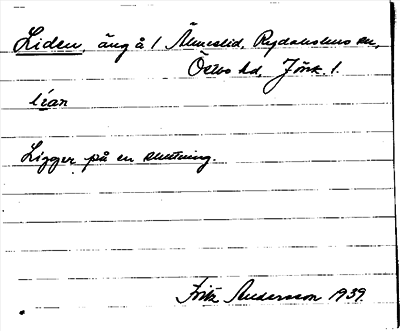 Liden, äng å 1 Älmeslid, Rydaholms sn,
Östbo hd, Jönk. l.
lían
Ligger på en sluttning.
Fritz Andersson 1939.